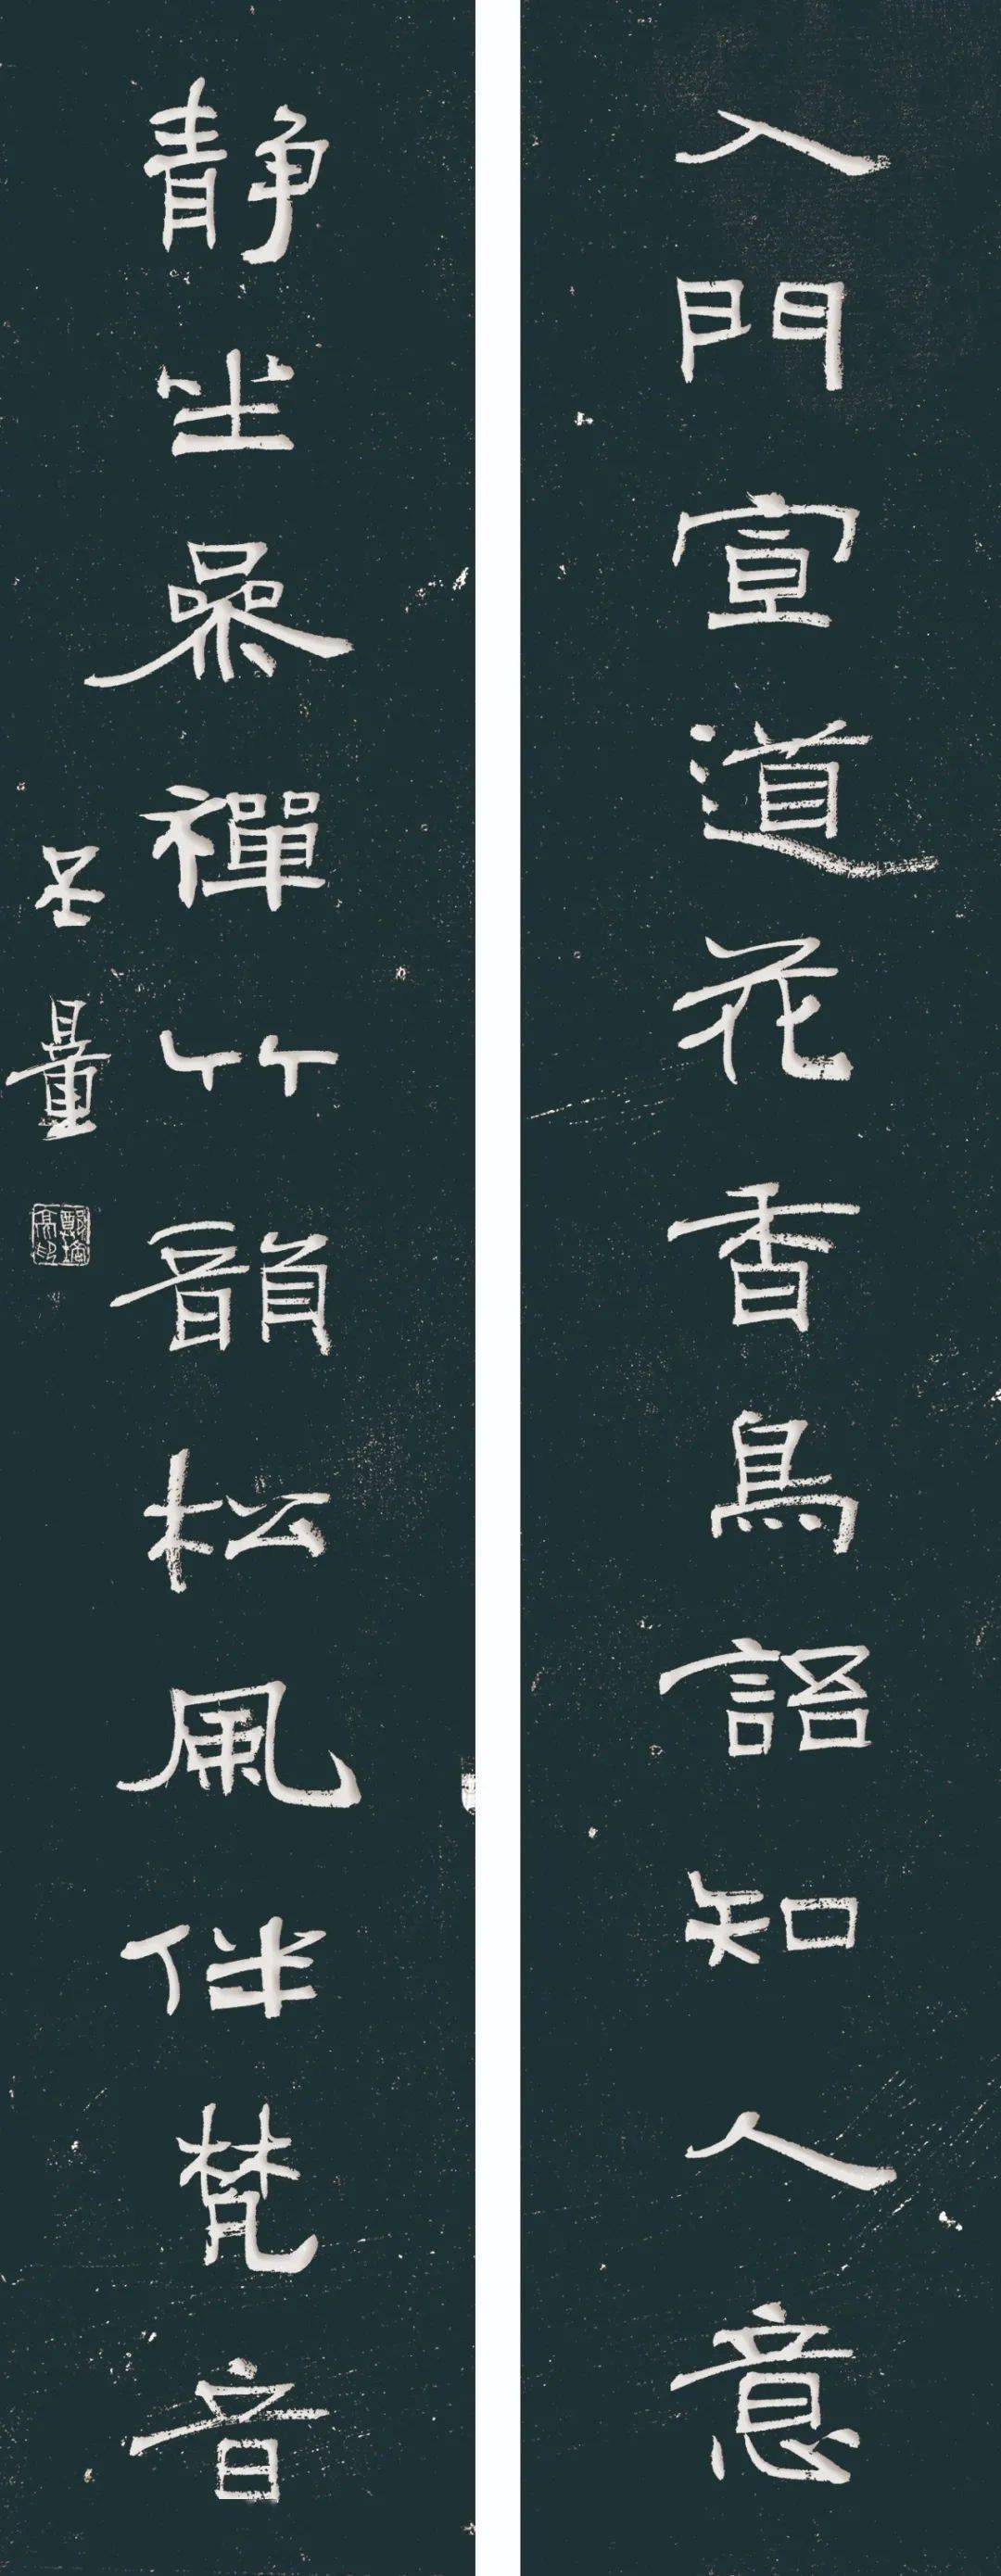 入門宣道花香鳥語知人意
静坐參禪竹韻松風伴梵音